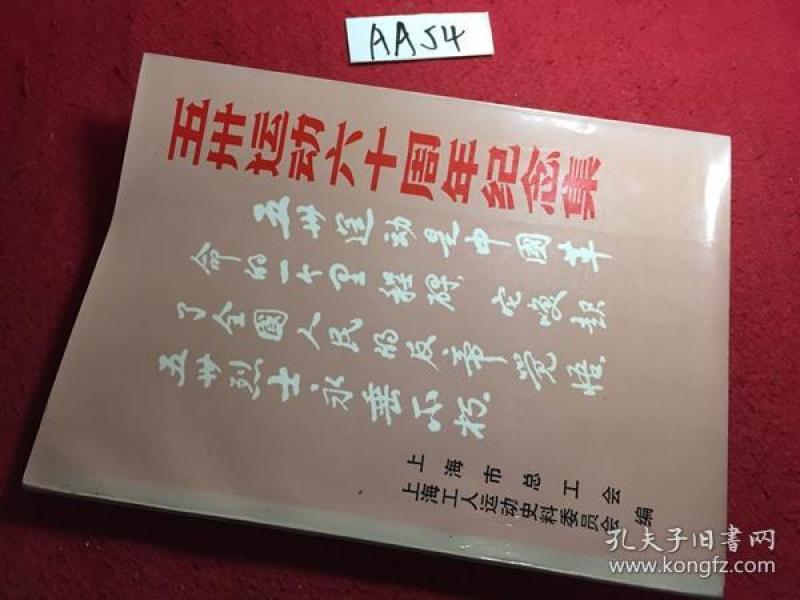 AA54
五卅运动六十周年纪念集
五卅運动是中國革
命的一个里程碑,它唤起
了全國人民的反帝觉悟,
五卅烈士永垂不朽。
上海市总工会
上海工人运动史料委员会 编
孔夫子旧書网
www.kongfz.com